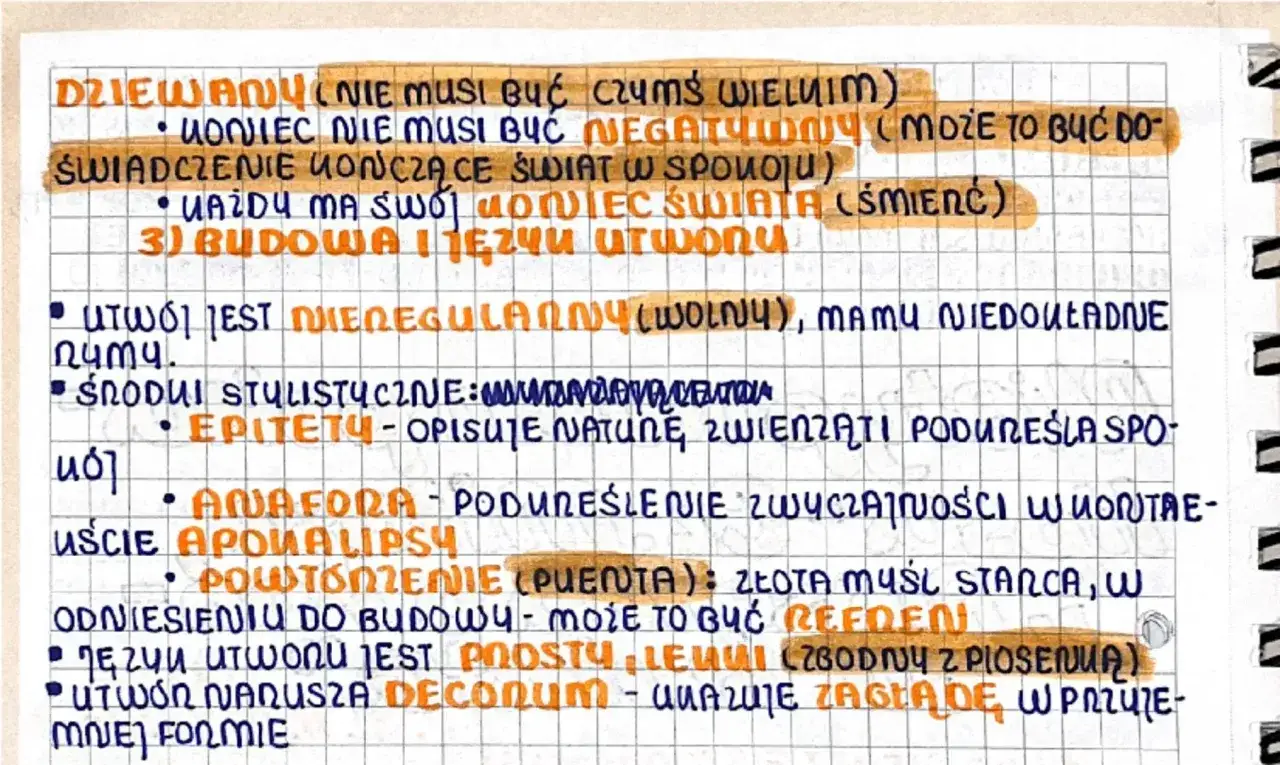 DZIEWANY (NIE MUSI BYĆ CZYMŚ WIELKIM)
• KONIEC NIE MUSI BYĆ NEGATYWNY (MOŻE TO BYĆ DO-
ŚWIADCZENIE KOŃCZĄCE ŚWIAT W SPOKOJU)
• KAŻDY MA SWÓJ KONIEC ŚWIATA (ŚMIERĆ)
3) BUDOWA I JĘZYK UTWORU
▪ UTWÓJ JEST NIEREGULARNY (WOLNY), MAMY NIEDOKŁADNE
RYMY.
▪ ŚRODKI STYLISTYCZNE:
• EPITETY - OPISUJE NATURĘ, ZWIERZĄT I PODKREŚLA SPO-
KÓJ
• ANAFORA - PODKREŚLENIE ZWYCZAJNOŚCI W KONTRE-
KŚCIE APOKALIPSY
• POWTÓRZENIE (PUENTA): ZŁOTA MYŚL STARCA, W
ODNIESIENIU DO BUDOWY - MOŻE TO BYĆ REFREN
▪ JĘZYK UTWORU JEST PROSTY, LEKKI (ZGODNY Z PIOSENKĄ)
▪ UTWÓR NARUSZA DECORUM - UKAZUJE ZAGŁADĘ W PRZYJE-
MNEJ FORMIE